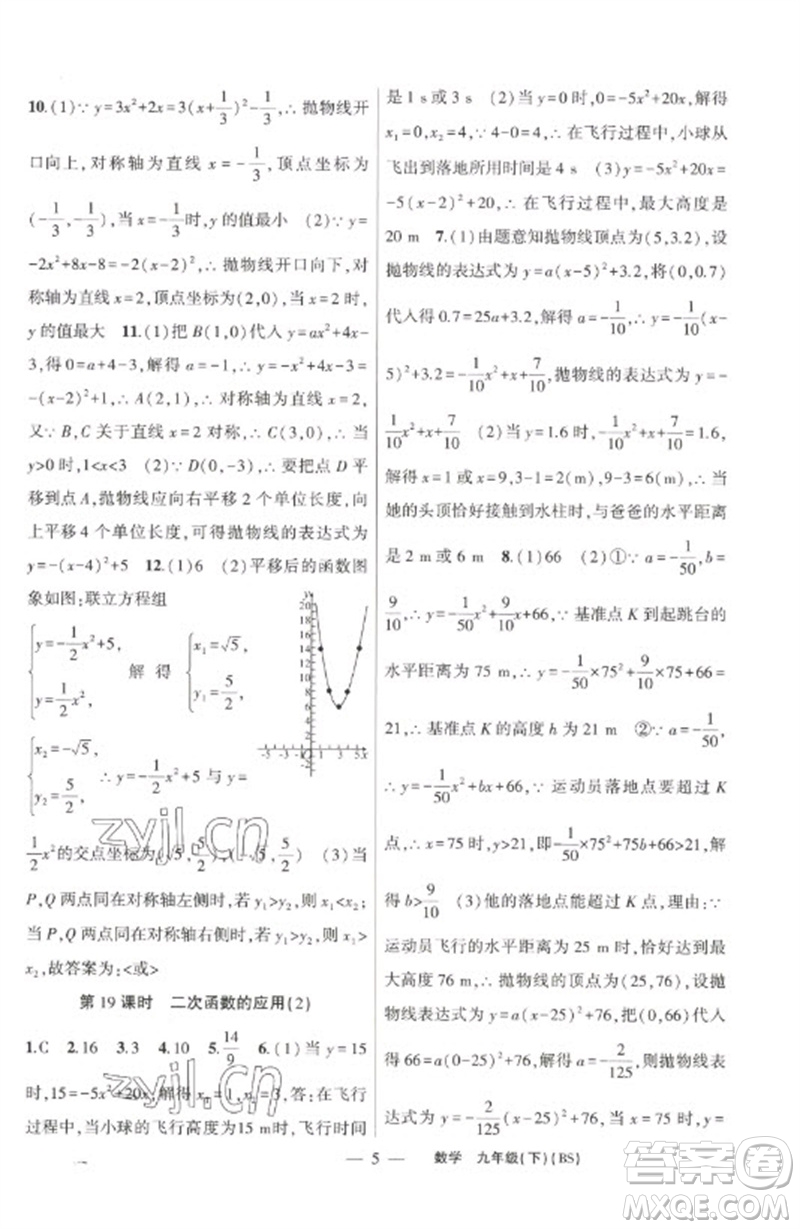 10.(1)∵y=3x²+2x=3(x+1/3)²-1/3,∴抛物线开
口向上,对称轴为直线 x=-1/3,顶点坐标为
(-1/3,-1/3),当 x=-1/3时,y 的值最小 (2)∵y=
-2x²+8x-8=-2(x-2)²,∴抛物线开口向下,对
称轴为直线 x=2,顶点坐标为(2,0),当 x=2 时,
y 的值最大 11.(1)把 B(1,0)代入 y=ax²+4x-
3,得 0=a+4-3,解得 a=-1,∴y=-x²+4x-3=
-(x-2)²+1,∴A(2,1),∴对称轴为直线 x=2,
又∵B,C 关于直线 x=2 对称,∴C(3,0),∴当
y>0 时,1<x<3 (2)∵D(0,-3),∴要把点 D 平
移到点 A,抛物线应向右平移 2 个单位长度,向
上平移 4 个单位长度,可得抛物线的表达式为
y=-(x-4)²+5 12.(1)6 (2)平移后的函数图
象如图:联立方程组
{y=-1/2x²+5, y=1/2x², 解得 {x₁=√5, y₁=5/2,
{x₂=-√5, y₂=5/2, ∴y=-1/2x²+5 与 y=
1/2x²的交点坐标为(√5,5/2),(-√5,5/2) (3)当
P,Q 两点同在对称轴左侧时,若 y₁>y₂,则 x₁<x₂;
当 P,Q 两点同在对称轴右侧时,若 y₁>y₂,则 x₁>
x₂,故答案为:<或>
第 19 课时 二次函数的应用(2)
1.C 2.16 3.3 4.10 5.14/9 6.(1)当 y=15
时,15=-5x²+20x,解得 x₁=1,x₂=3,答:在飞行
过程中,当小球的飞行高度为15 m时,飞行时间
是 1 s或 3 s (2)当 y=0时,0=-5x²+20x,解得
x₁=0,x₂=4,∵4-0=4,∴在飞行过程中,小球从
飞出到落地所用时间是 4 s (3)y=-5x²+20x=
-5(x-2)²+20,∴在飞行过程中,最大高度是
20 m 7.(1)由题意知抛物线顶点为(5,3.2),设
抛物线的表达式为 y=a(x-5)²+3.2,将(0,0.7)
代入得 0.7=25a+3.2,解得 a=-1/10,∴y=-1/10(x-
5)²+3.2=-1/10x²+x+7/10,抛物线的表达式为 y=-
1/10x²+x+7/10 (2)当 y=1.6时,-1/10x²+x+7/10=1.6,
解得 x=1或 x=9,3-1=2(m),9-3=6(m),∴当
她的头顶恰好接触到水柱时,与爸爸的水平距离
是 2 m或 6 m 8.(1)66 (2)①∵a=-1/50,b=
9/10,∴y=-1/50x²+9/10x+66,∵基准点 K 到起跳台的
水平距离为 75 m,∴y=-1/50×75²+9/10×75+66=
21,∴基准点 K 的高度 h 为 21 m ②∵a=-1/50,
∴y=-1/50x²+bx+66,∵运动员落地点要超过 K
点,∴x=75 时,y>21,即-1/50×75²+75b+66>21,解
得 b>9/10 (3)他的落地点能超过 K 点,理由:∵
运动员飞行的水平距离为 25 m时,恰好达到最
大高度 76 m,∴抛物线的顶点为(25,76),设抛
物线的表达式为 y=a(x-25)²+76,把(0,66)代入
得 66=a(0-25)²+76,解得 a=-2/125,则抛物线表
达式为 y=-2/125(x-25)²+76,当 x=75 时,y=
— 5 — 数学 九年级(下)(BS)
zyjl.cn
zyjl.cn
答案圈
MXQE.COM